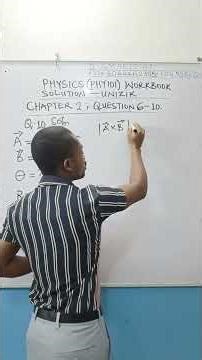 PHYSICS (PHY101) WORKBOOK
SOLUTION — UNIZIK
CHAPTER 2, QUESTION 6-10.
Q. 10 Soln
|A⃗ × B⃗
A⃗ =
B⃗ =
θ =